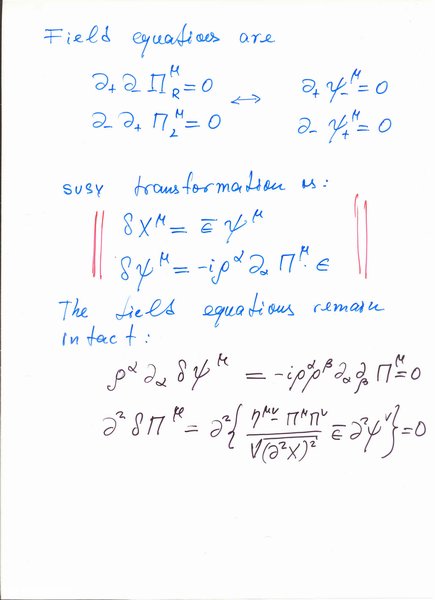 Field equations are
∂₊ ∂₋ Π_R^μ = 0 ↔ ∂₊ ψ₋^μ = 0
∂₋ ∂₊ Π_L^μ = 0 ∂₋ ψ₊^μ = 0
SUSY transformation is:
δX^μ = ε̄ ψ^μ
δψ^μ = -iρ^α ∂_α Π^μ · ε
The field equations remain
intact:
ρ^α ∂_α δψ^μ = -iρ^α ρ^β ∂_α ∂_β Π^μ = 0
∂² δΠ^μ = ∂² { (η^{μν} - Π^μ Π^ν) / √(∂²X)² ε̄ ∂²ψ^ν } = 0